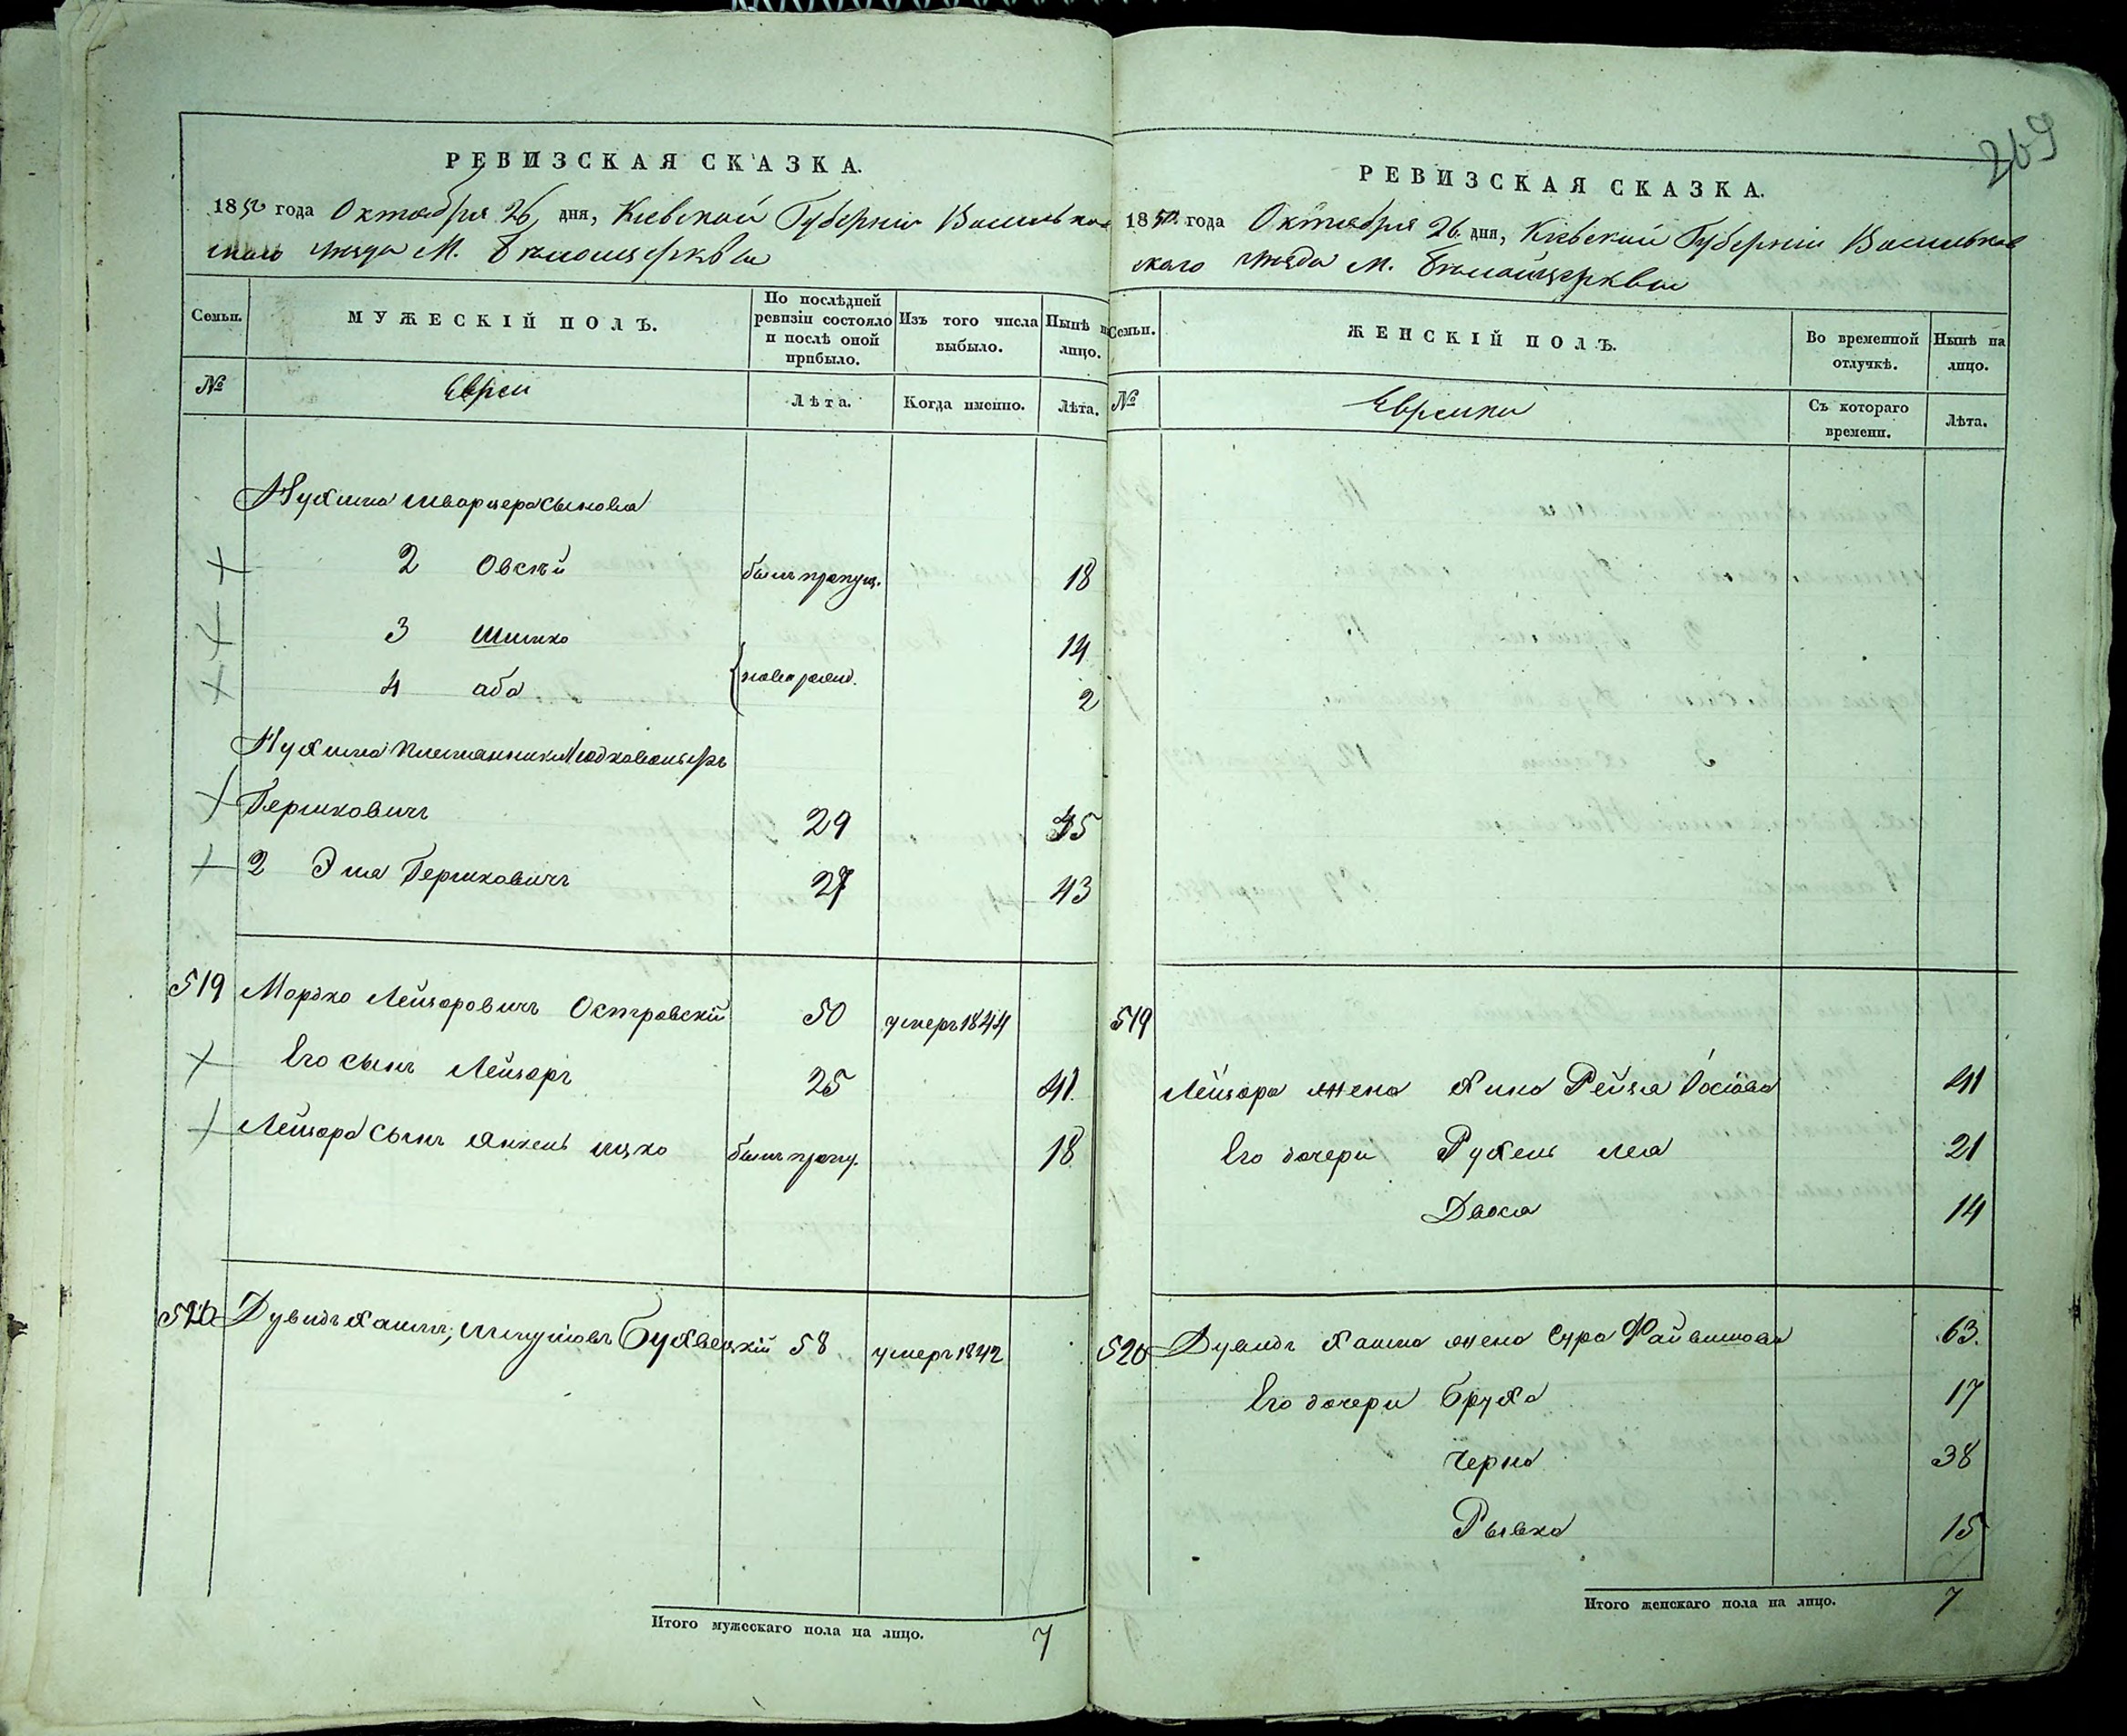 269
РЕВИЗСКАЯ СКАЗКА.
1850 года Октября 26 дня, Кіевской Губерніи Васильков
скаго уезда М. Белоцеркви
Семьи.
МУЖЕСКІЙ ПОЛЪ.
По послѣдней ревизіи состояло и послѣ оной прибыло.
Изъ того числа выбыло.
Нынѣ на лицо.
№
Евреи
Лѣта.
Когда именно.
Лѣта.
Нухима Шварцера сынова
2 Овсѣй былъ пропущ. 18
3 Шишко 14
4 аба новорожд. 2
Нухима племянники
Гершковичъ 29 45
2 Эля Гершковичъ 27 43
519 Мордко Лейзоровичъ Островскій 50 умеръ 1844
Его сынъ Лейзоръ 25 41
Лейзора сынъ Янкель ицко былъ пропу. 18
520 Дувидъ Хаимъ Бухвецкій 58 умеръ 1842
Итого мужескаго пола на лицо. 7
РЕВИЗСКАЯ СКАЗКА.
1850 года Октября 26 дня, Кіевской Губерніи Васильков
скаго уезда м. Белойцеркви
Семьи.
ЖЕНСКІЙ ПОЛЪ.
Во временной отлучкѣ.
Нынѣ на лицо.
№
Еврейки
Съ котораго времени.
Лѣта.
519
Лейзора жена Хина Рейзя 41
Его дочери Рухель лея 21
Двося 14
520 Дувидъ Хаима жена Сура Файвишова 63
Его дочери Бруха 17
Черна 38
Рывка 15
Итого женскаго пола на лицо. 7